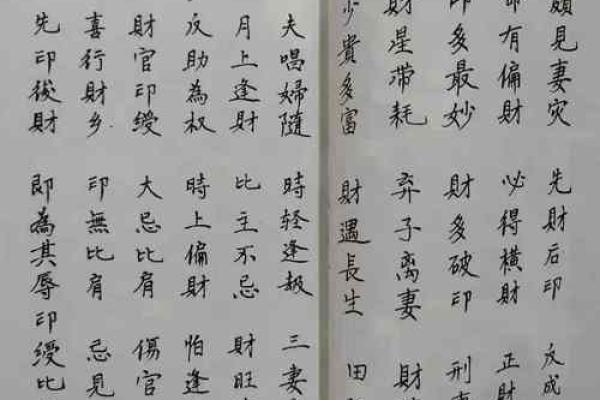 頗見妻灾 先財后印 反成
命有偏財 必得橫財 正財
印多最妙 財多破印 刑
財星帶耗 弃子离妻 財
少貴多富 財遇長生 田
夫唱婦隨 時轻逢 三妻
月上逢財 比主不忌 財旺
反助為权 時上偏財 怕逢
財官印綬 大忌比肩 傷官
喜行財乡 印無比肩 忌見
先印後財 即為其辱 印綬比